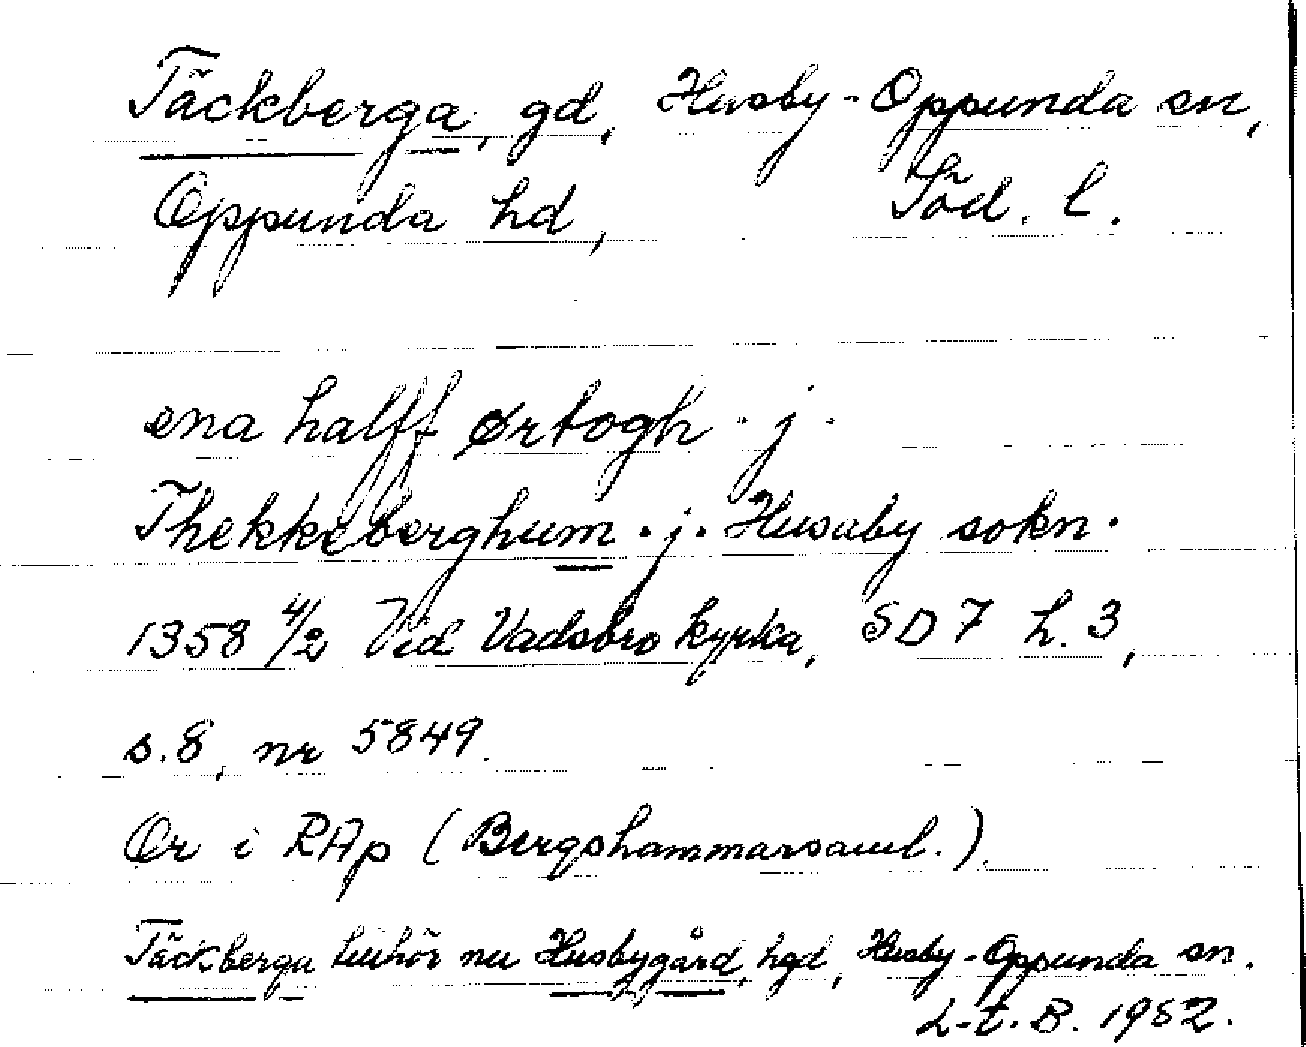 Täckberga, gd, Husby-Oppunda sn,
Oppunda hd, Söd. l.
ena halff ørtogh · j ·
Thekkeberghum · j · Husaby sokn ·
1358 4/2 Vid Vadsbro kyrka, SD 7 h. 3,
s. 8, nr 5849.
Or i RAp (Bergshammarsaml.).
Täckberga tillhör nu Husbygård, hgd, Husby-Oppunda sn.
L-t. B. 1952.